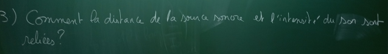 3) Comment la distance de la source sonore et l'intensité du son sont
reliées ?